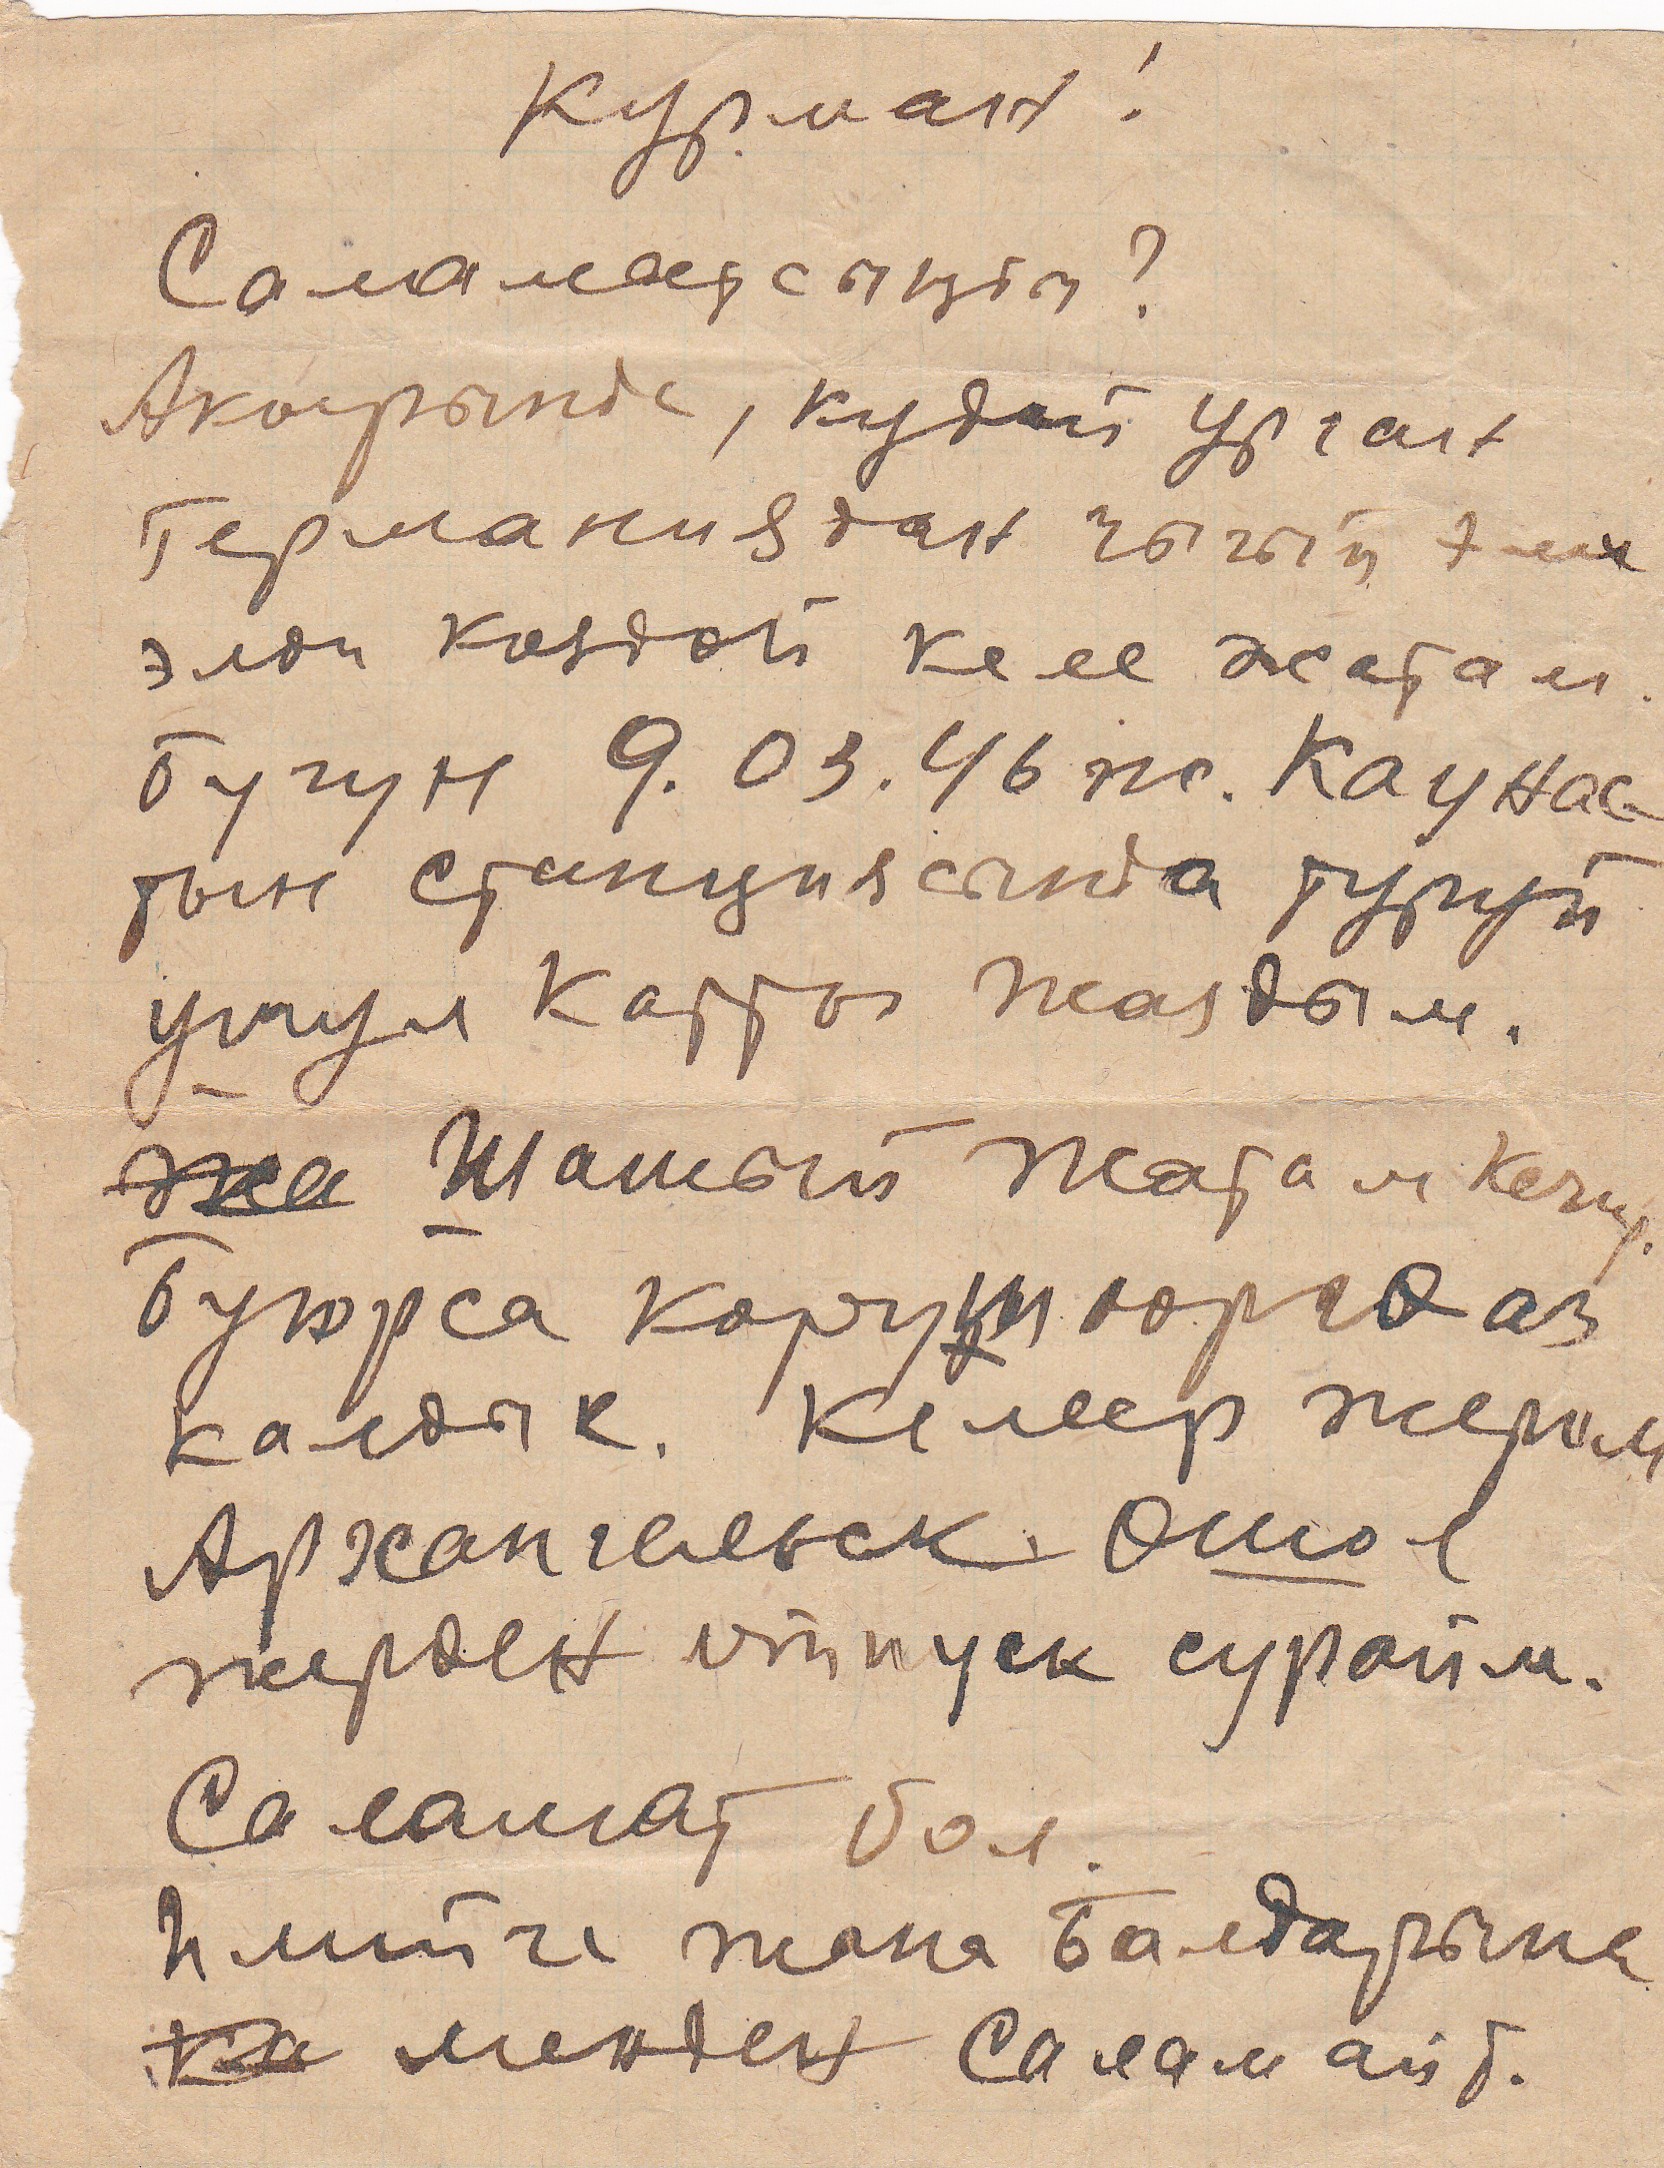 Курман!
Саламатсыңбы?
Акырында, кудай урган
Германиядан чыгып эми
элди көздөй келе жатам.
Бүгүн 9.03.46 ж. Каунас
тын станциясында туруп
ушул катты жаздым.
Шашып жатам кечир.
Буюрса көрүшөөргө аз
калдык. Келеер жерим
Архангельск. Ошол
жерден отпуск сурайм.
Саламат бол.
жана балдарына
менден салам айт.